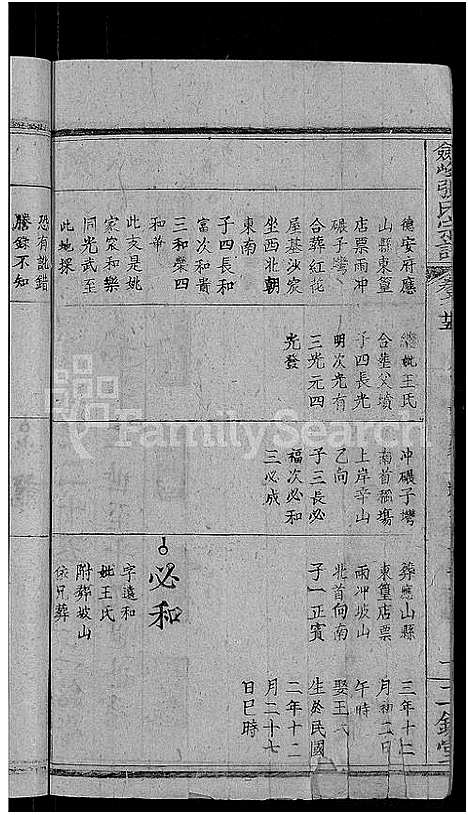 劍峰張氏宗譜
卷廿五
三鑑堂
德安府應
山縣東篁
店票雨冲
碾子塆
合葬紅花
屋基沙窝
坐西北朝
東南
子四長和
富次和貴
三和榮四
和華
此支是姚
家宗和樂
同光武至
此地探
謄錄不知
恐有訛錯
繼妣王氏
合塟父墳
子四長光
明次光有
三光元四
光發
冲碾子塆
南首稲塲
上岸辛山
乙向
子三長必
福次必和
三必成
葬應山縣
東篁店票
雨冲坡山
北首向南
子一正賓
必和
字遠和
妣王氏
附葬坡山
依兄葬
三年十二
月初二日
午時
娶王氏
生於民國
二年十二
月二十七
日巳時
FamilySearch